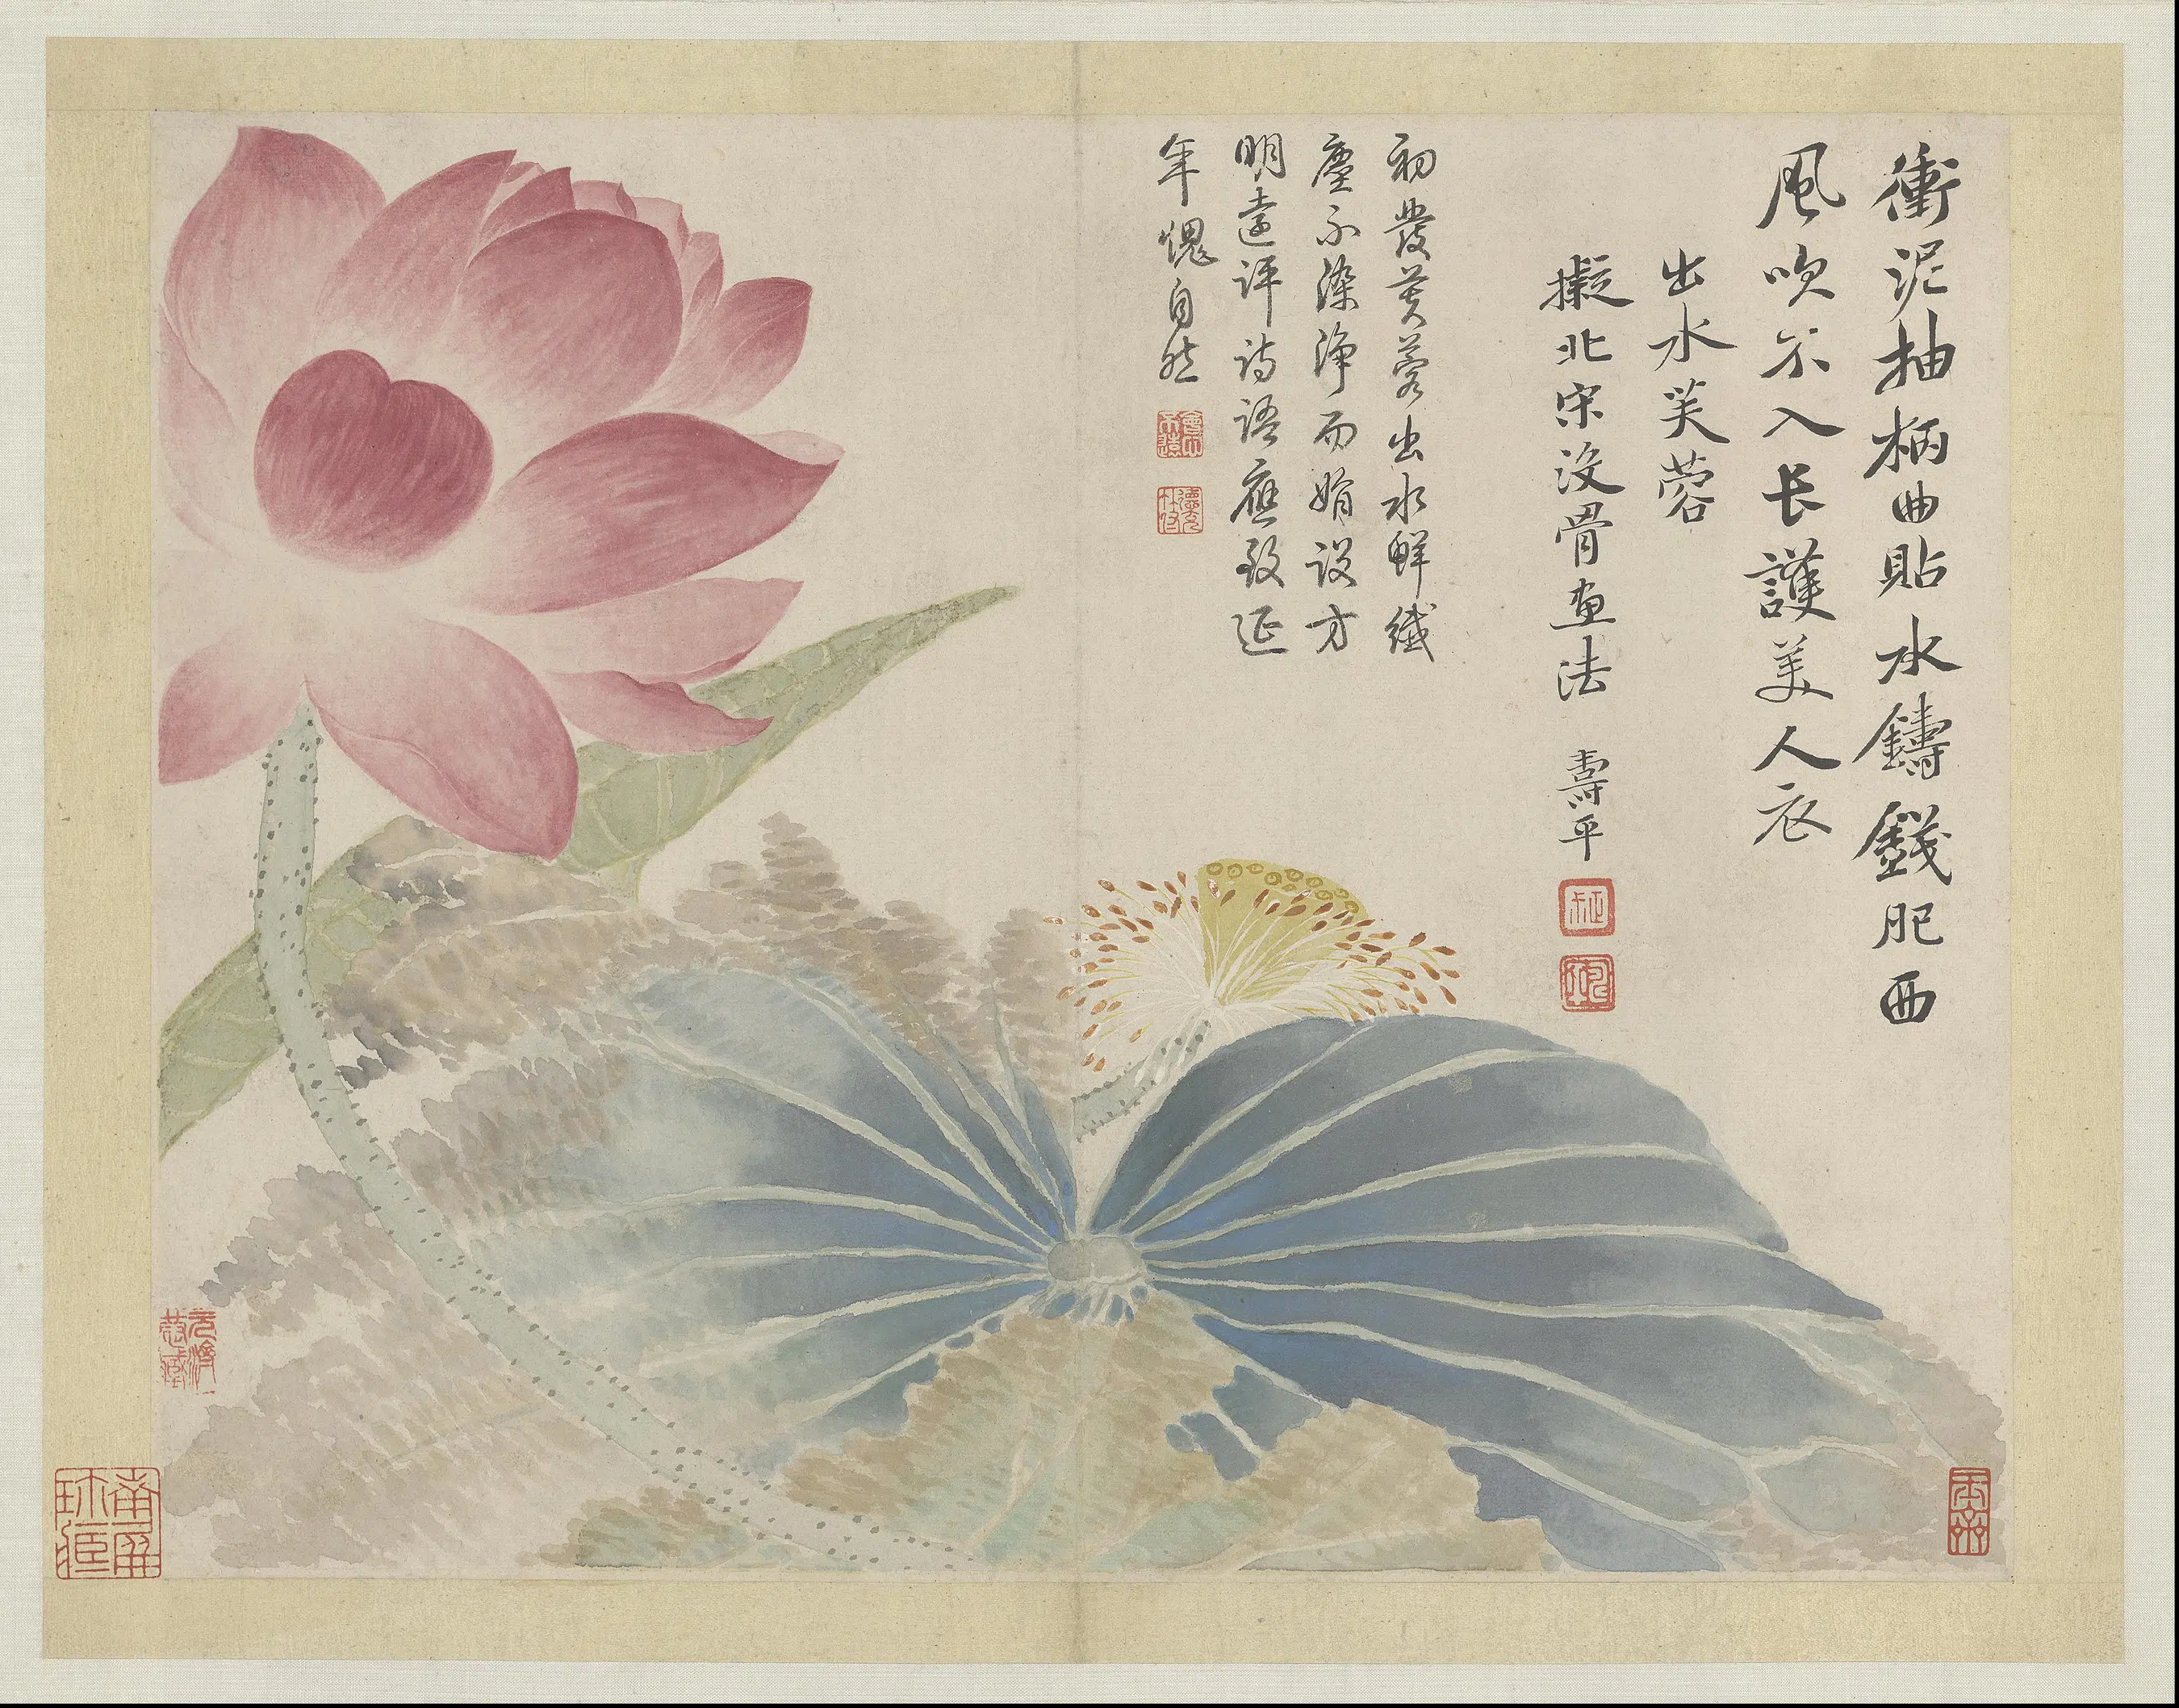 衝泥抽柄曲貼水鑄錢肥西
風吹不入長護美人衣
出水芙蓉
擬北宋没骨畫法 壽平
初發芙蓉出水鮮纖
塵不染淨而娟設方
明遠評詩語應致延
年愧自然
會心不遠
德充符